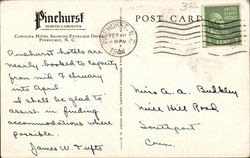 Pinehurst
NORTH CAROLINA
CAROLINA HOTEL SHOWING ENTRANCE DRIVE
PINEHURST, N. C.
POST CARD
PINEHURST, N.C.
FEB
PM
Pinehurst hotels are
nearly booked to capacity
from mid February
into April
I shall be glad to
assist in finding
accommodations where
possible.
James W. Tufts
Miss A. A. Bulkley
Mill Hill Road
Southport
Conn.